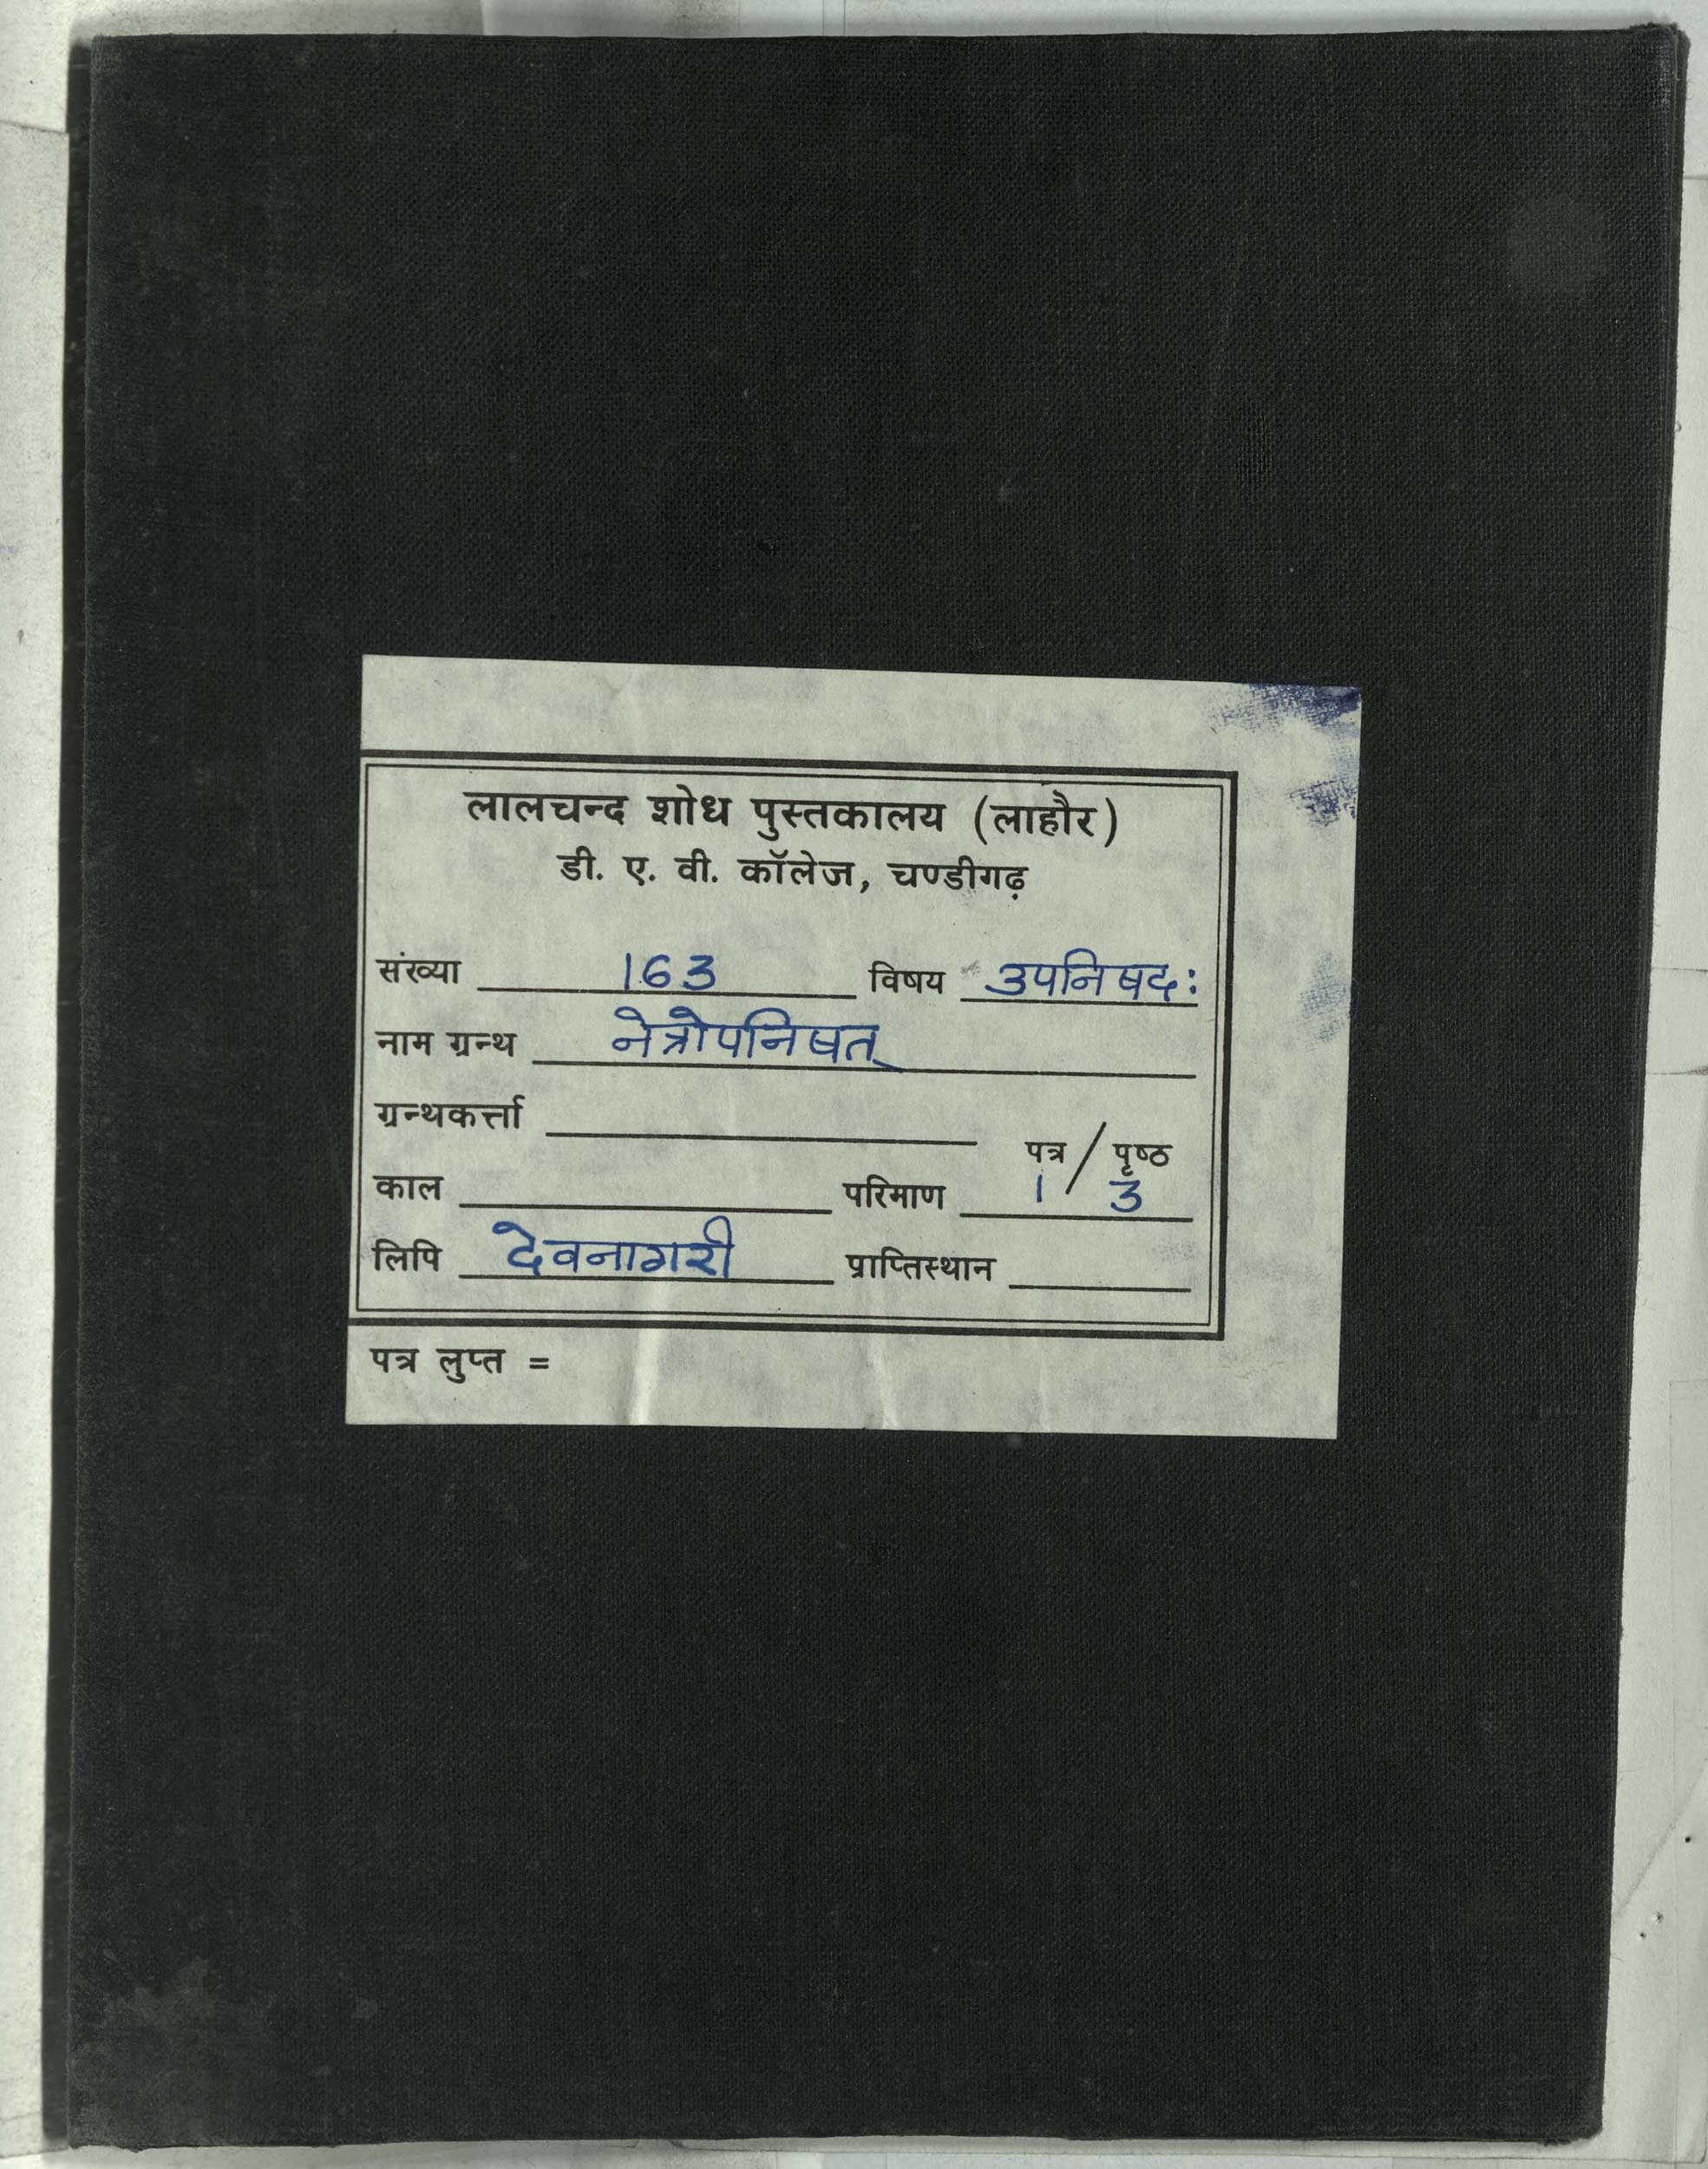 लालचन्द शोध पुस्तकालय (लाहौर)
डी. ए. वी. कॉलेज, चण्डीगढ़
संख्या 163 विषय उपनिषद:
नाम ग्रन्थ नेत्रोपनिषत्
ग्रन्थकर्त्ता
पत्र / पृष्ठ
काल परिमाण 1 / 3
लिपि देवनागरी प्राप्तिस्थान
पत्र लुप्त =